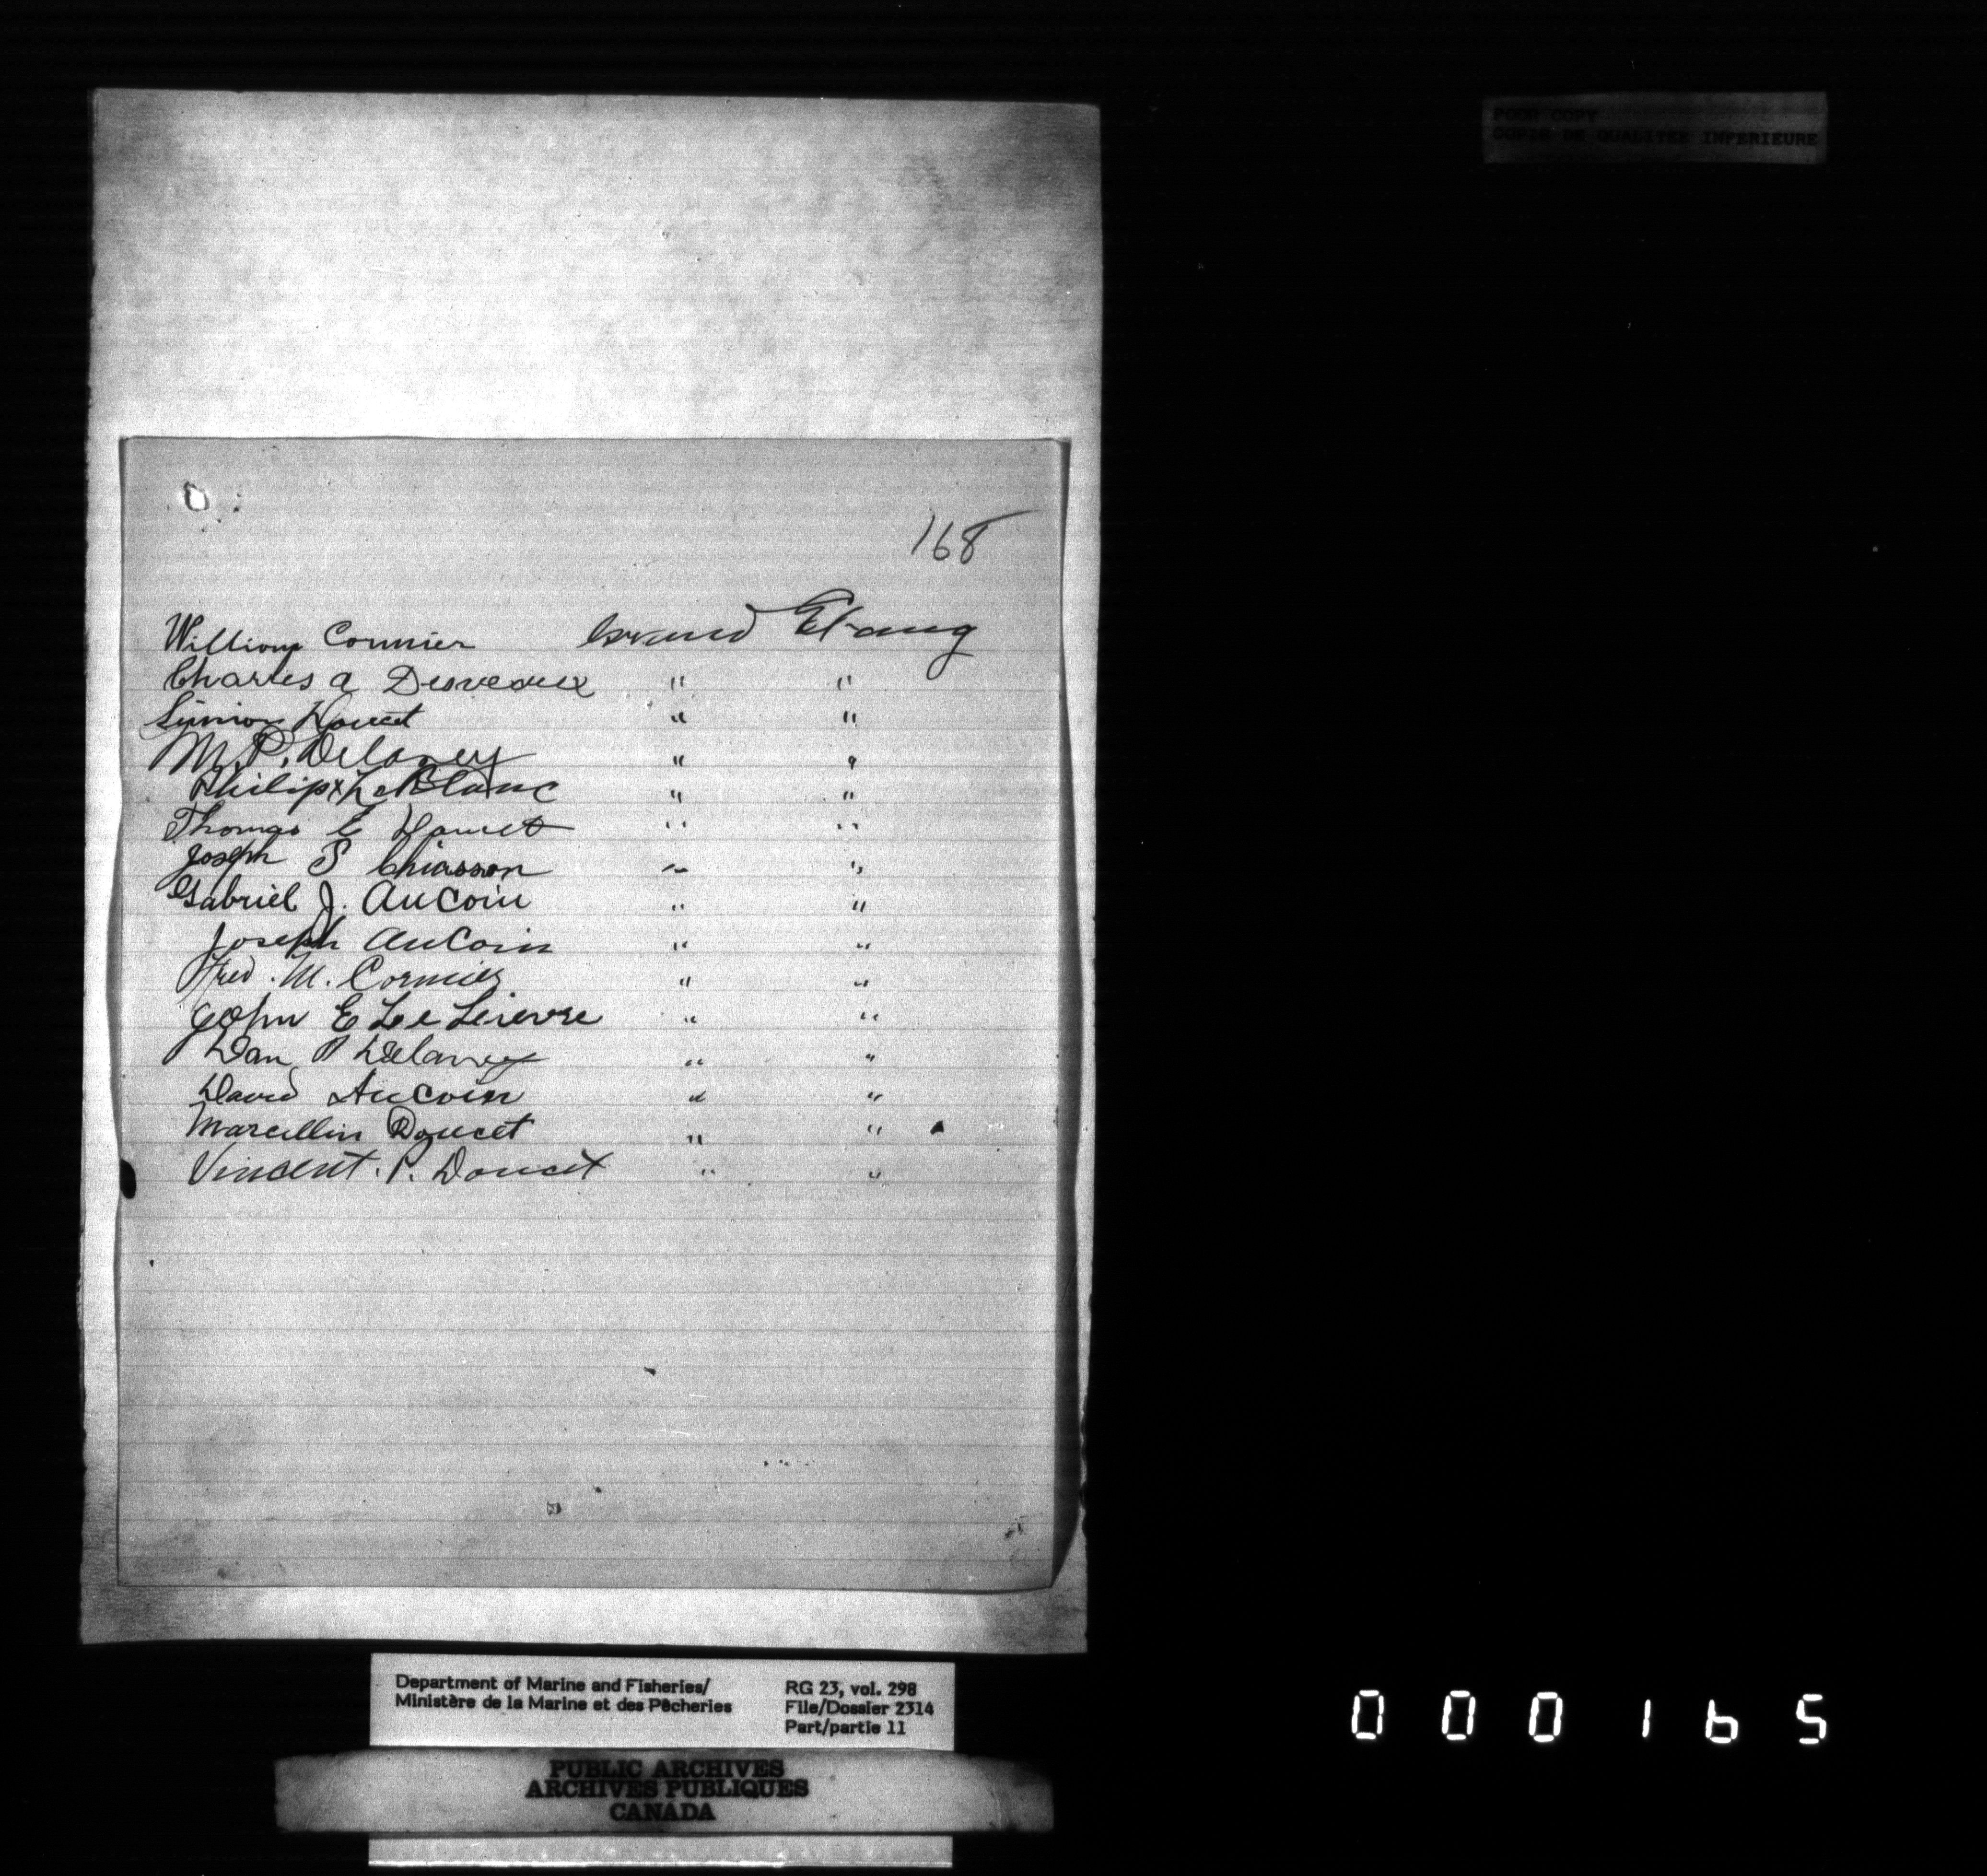 POOR COPY
COPIE DE QUALITEE INFERIEURE
168
William Cormier Grand Etang
Charles a Desveaux " "
Simion Doucet " "
M. P. Delaney " "
Philip x LeBlanc " "
Thomas E Doucet " "
Joseph S Chiasson " "
Gabriel J. AuCoin " "
Joseph AuCoin " "
Fred. M. Cormier " "
John E Le Lievre " "
Dan P Delaney " "
David AuCoin " "
Marcellin Doucet " "
Vincent. P. Doucet " "
Department of Marine and Fisheries/
Ministère de la Marine et des Pêcheries
RG 23, vol. 298
File/Dossier 2314
Part/partie 11
PUBLIC ARCHIVES
ARCHIVES PUBLIQUES
CANADA
000165